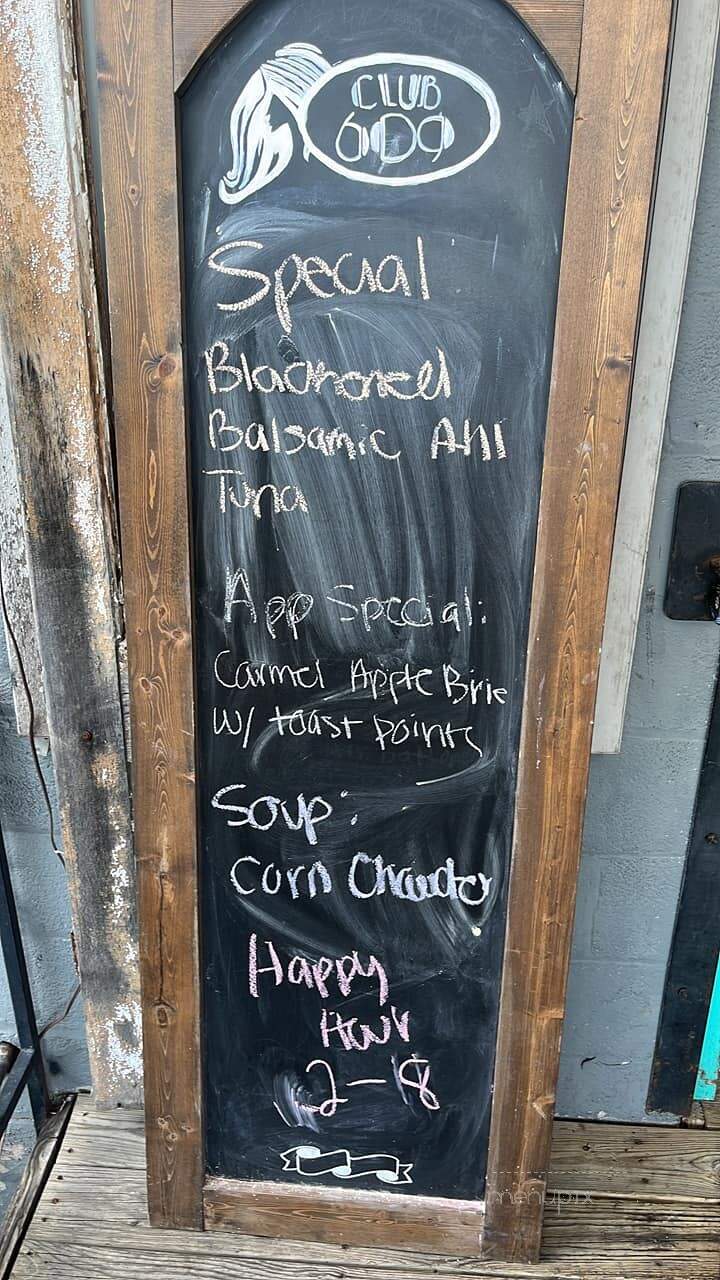 CLUB
609
Special
Blackened
Balsamic Ahi
Tuna
App Special:
Carmel Apple Brie
W/ toast points
Soup:
Corn Chowder
Happy
Hour
2-8
menupix